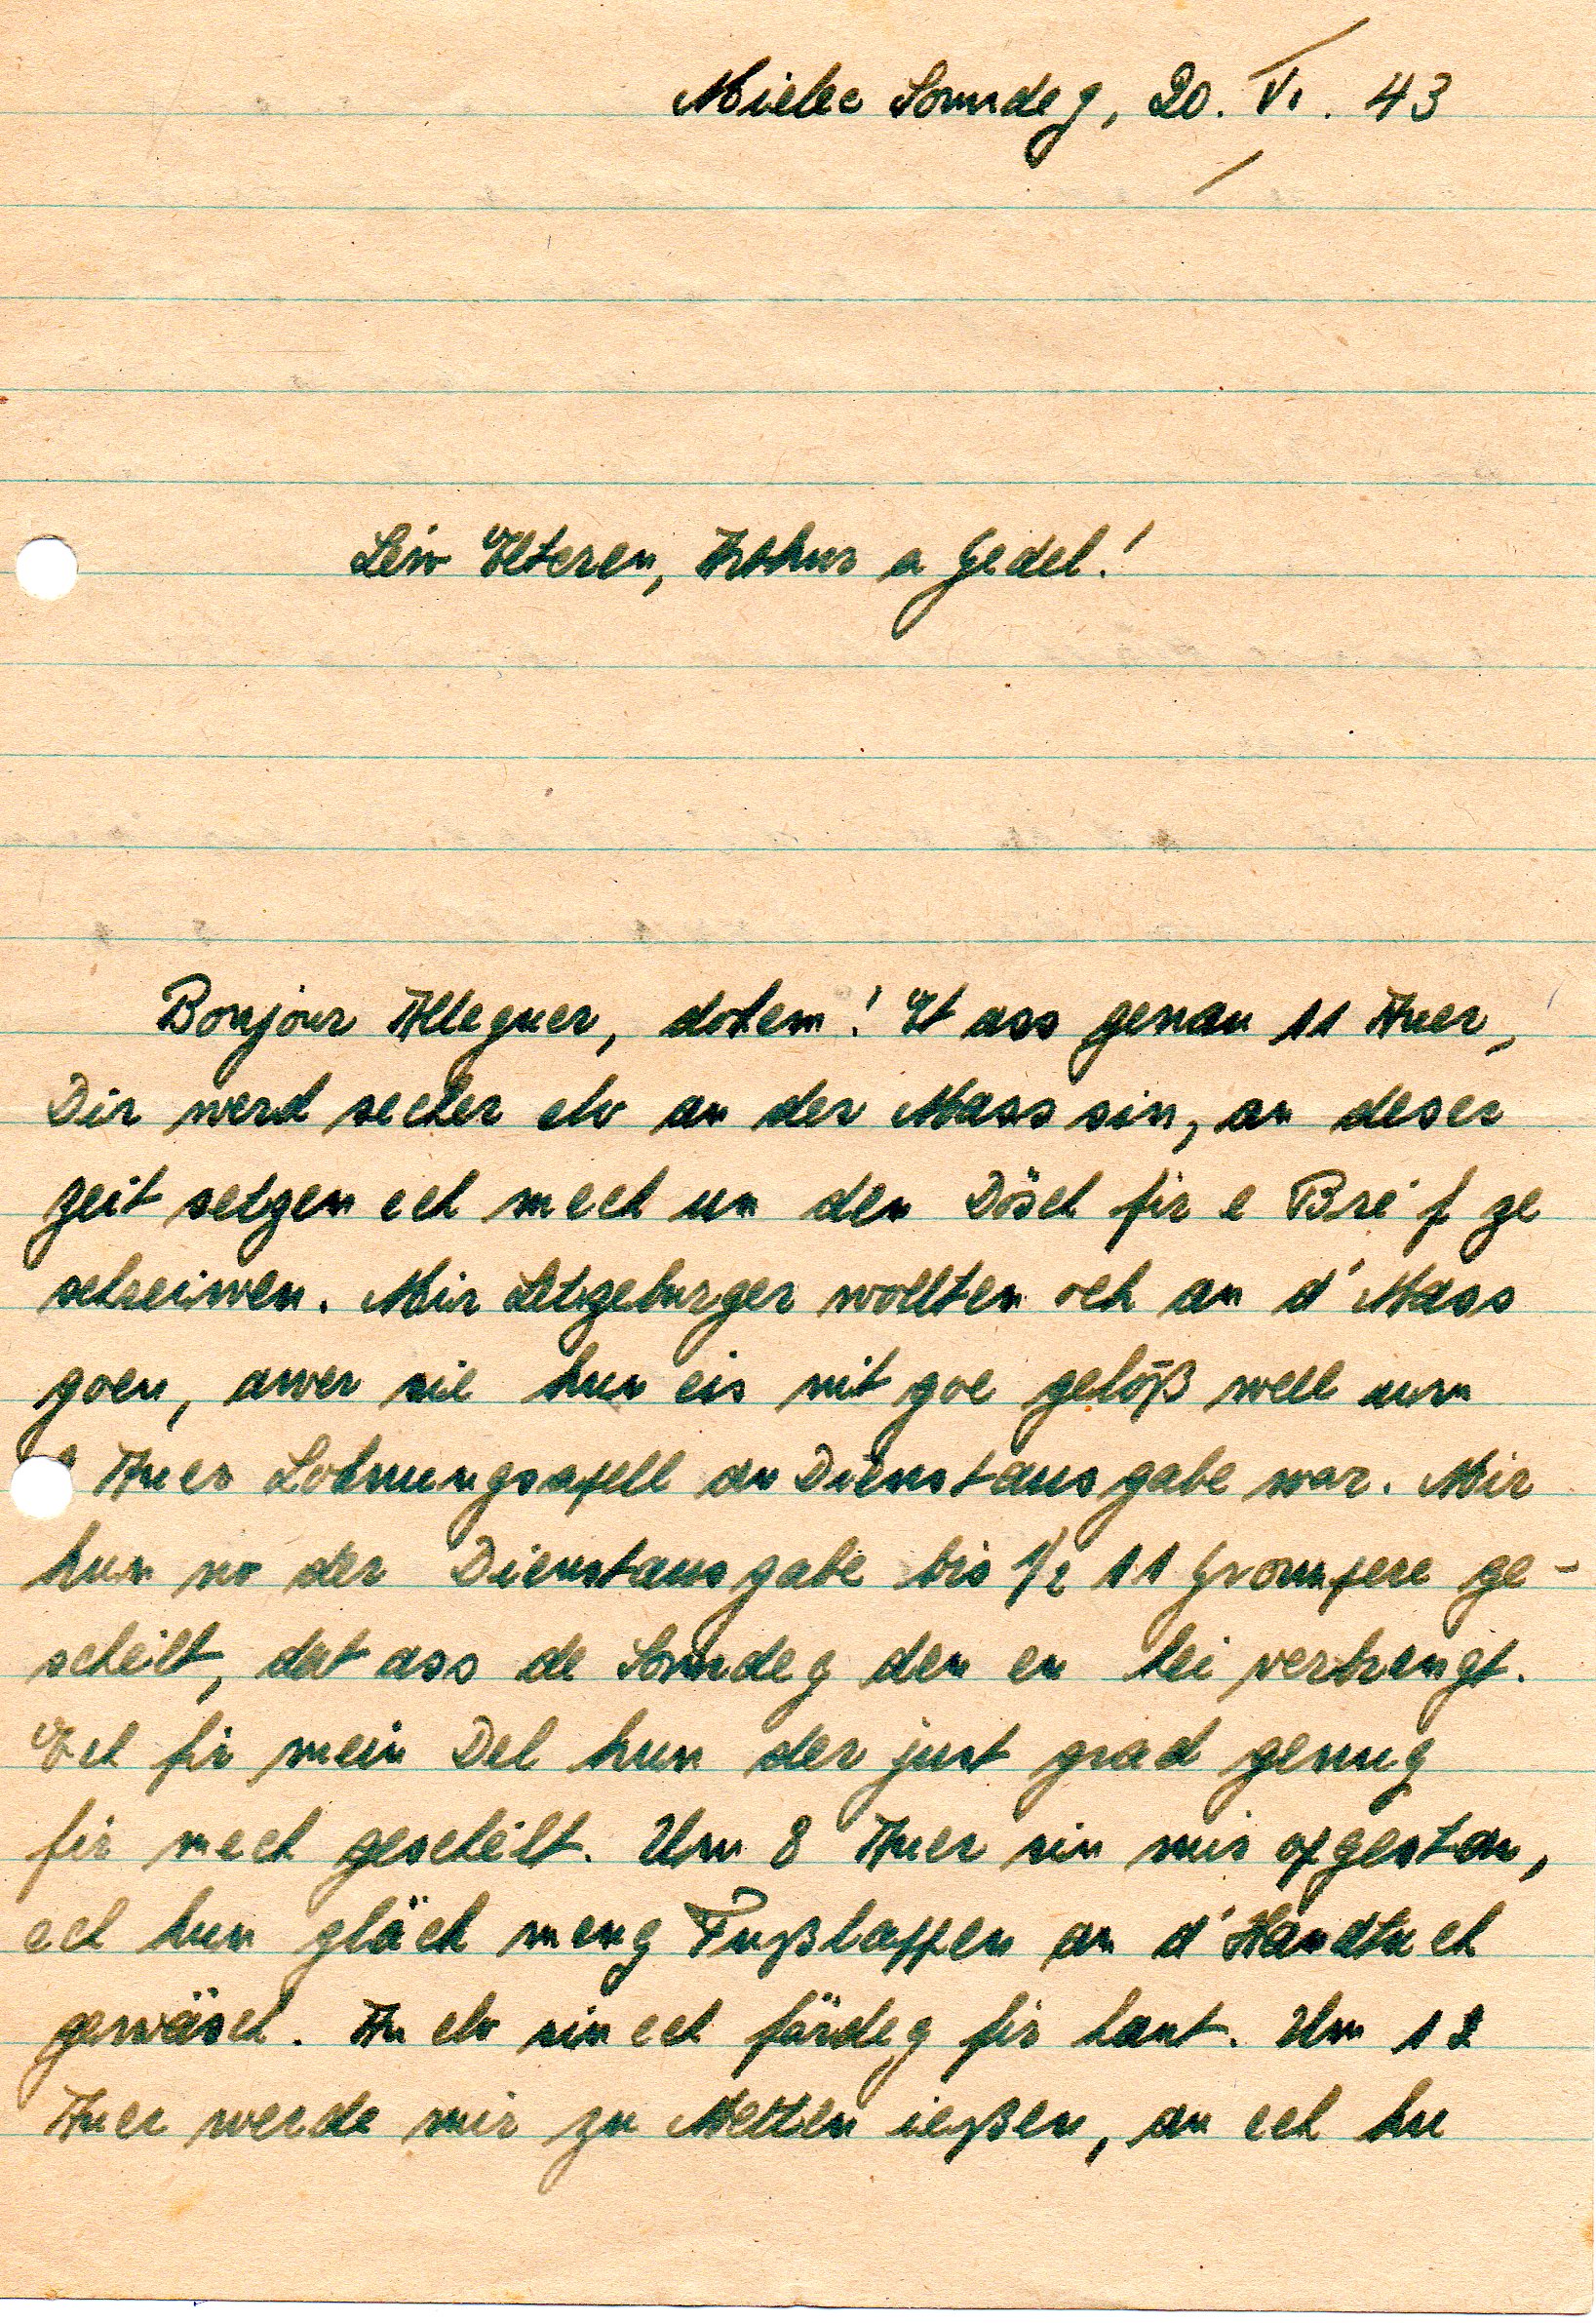 Mielec Sonndeg, 20. VI. 43
Léiw Elteren, Arthur a Gedel!
Bonjour Alleguer, dohem! Et ass genau 11 Auer,
Dir werd secher elo an der Mass sin, an deser
Zeit setzen ech mech un den Dösch fir e Bréf ze
schreiwen. Mir Letzeburger wollten och an d'Mass
goen, awer sie hun eis nit goe gelôß well um
Auer Lohnungsapell an Dienstausgabe war. Mir
hun no der Dienstausgabe bis 1/2 11 Grompere ge-
scheilt, dat ass de Sonndeg den en hei verbrengt.
Ech fir mein Del hun der just grad genug
fir mech gescheilt. Um 8 Auer sin mir opgestan,
ech hun gläch meng Fußlappen an d'Handtuch
gewäsch. An elo sin ech färdeg fir haut. Um 12
Auer werde mir zu Metten ießen, an ech hu